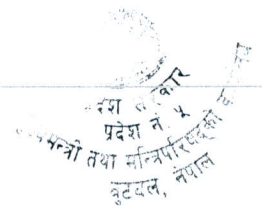 प्रदेश सरकार
प्रदेश नं. ५
मुख्यमन्त्री तथा मन्त्रिपरिषद्को
बुटवल, नेपाल